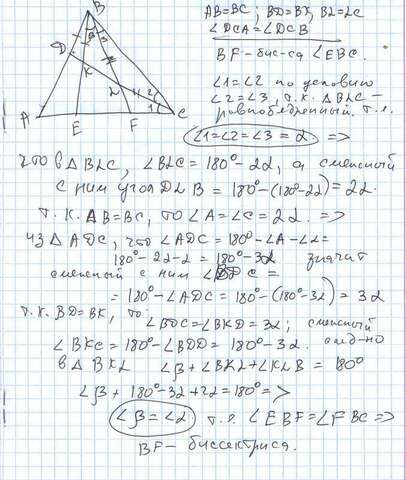 B
AB=BC; BD=BK, BL=LC
∠DCA=∠DCB
BF-бис-са ∠EBC.
D
K
L
A
E
F
C
∠1=∠2 по условию
∠2=∠3, т.к. ΔBLC-
равнобедренный, т.е.
∠1=∠2=∠3=α =>
что в ΔBLC, ∠BLC=180°-2α, а смежный
с ним угол DLB = 180°-(180°-2α)=2α.
т.к. AB=BC, то ∠A=∠C=2α. =>
из ΔADC, что ∠ADC=180°-∠A-∠α=
180°-2α-α=180°-3α значит
смежный с ним ∠BDC =
= 180°-∠ADC=180°-(180°-3α)=3α
т.к. BD=BK, то:
∠BDC=∠BKD=3α; смежный
∠BKC=180°-∠BDD=180°-3α. след-но
в ΔBKL ∠β+∠BKL+∠KLB=180°
∠β+180°-3α+2α=180°=>
∠β=∠α. т.е. ∠EBF=∠FBC=>
BF-биссектриса.